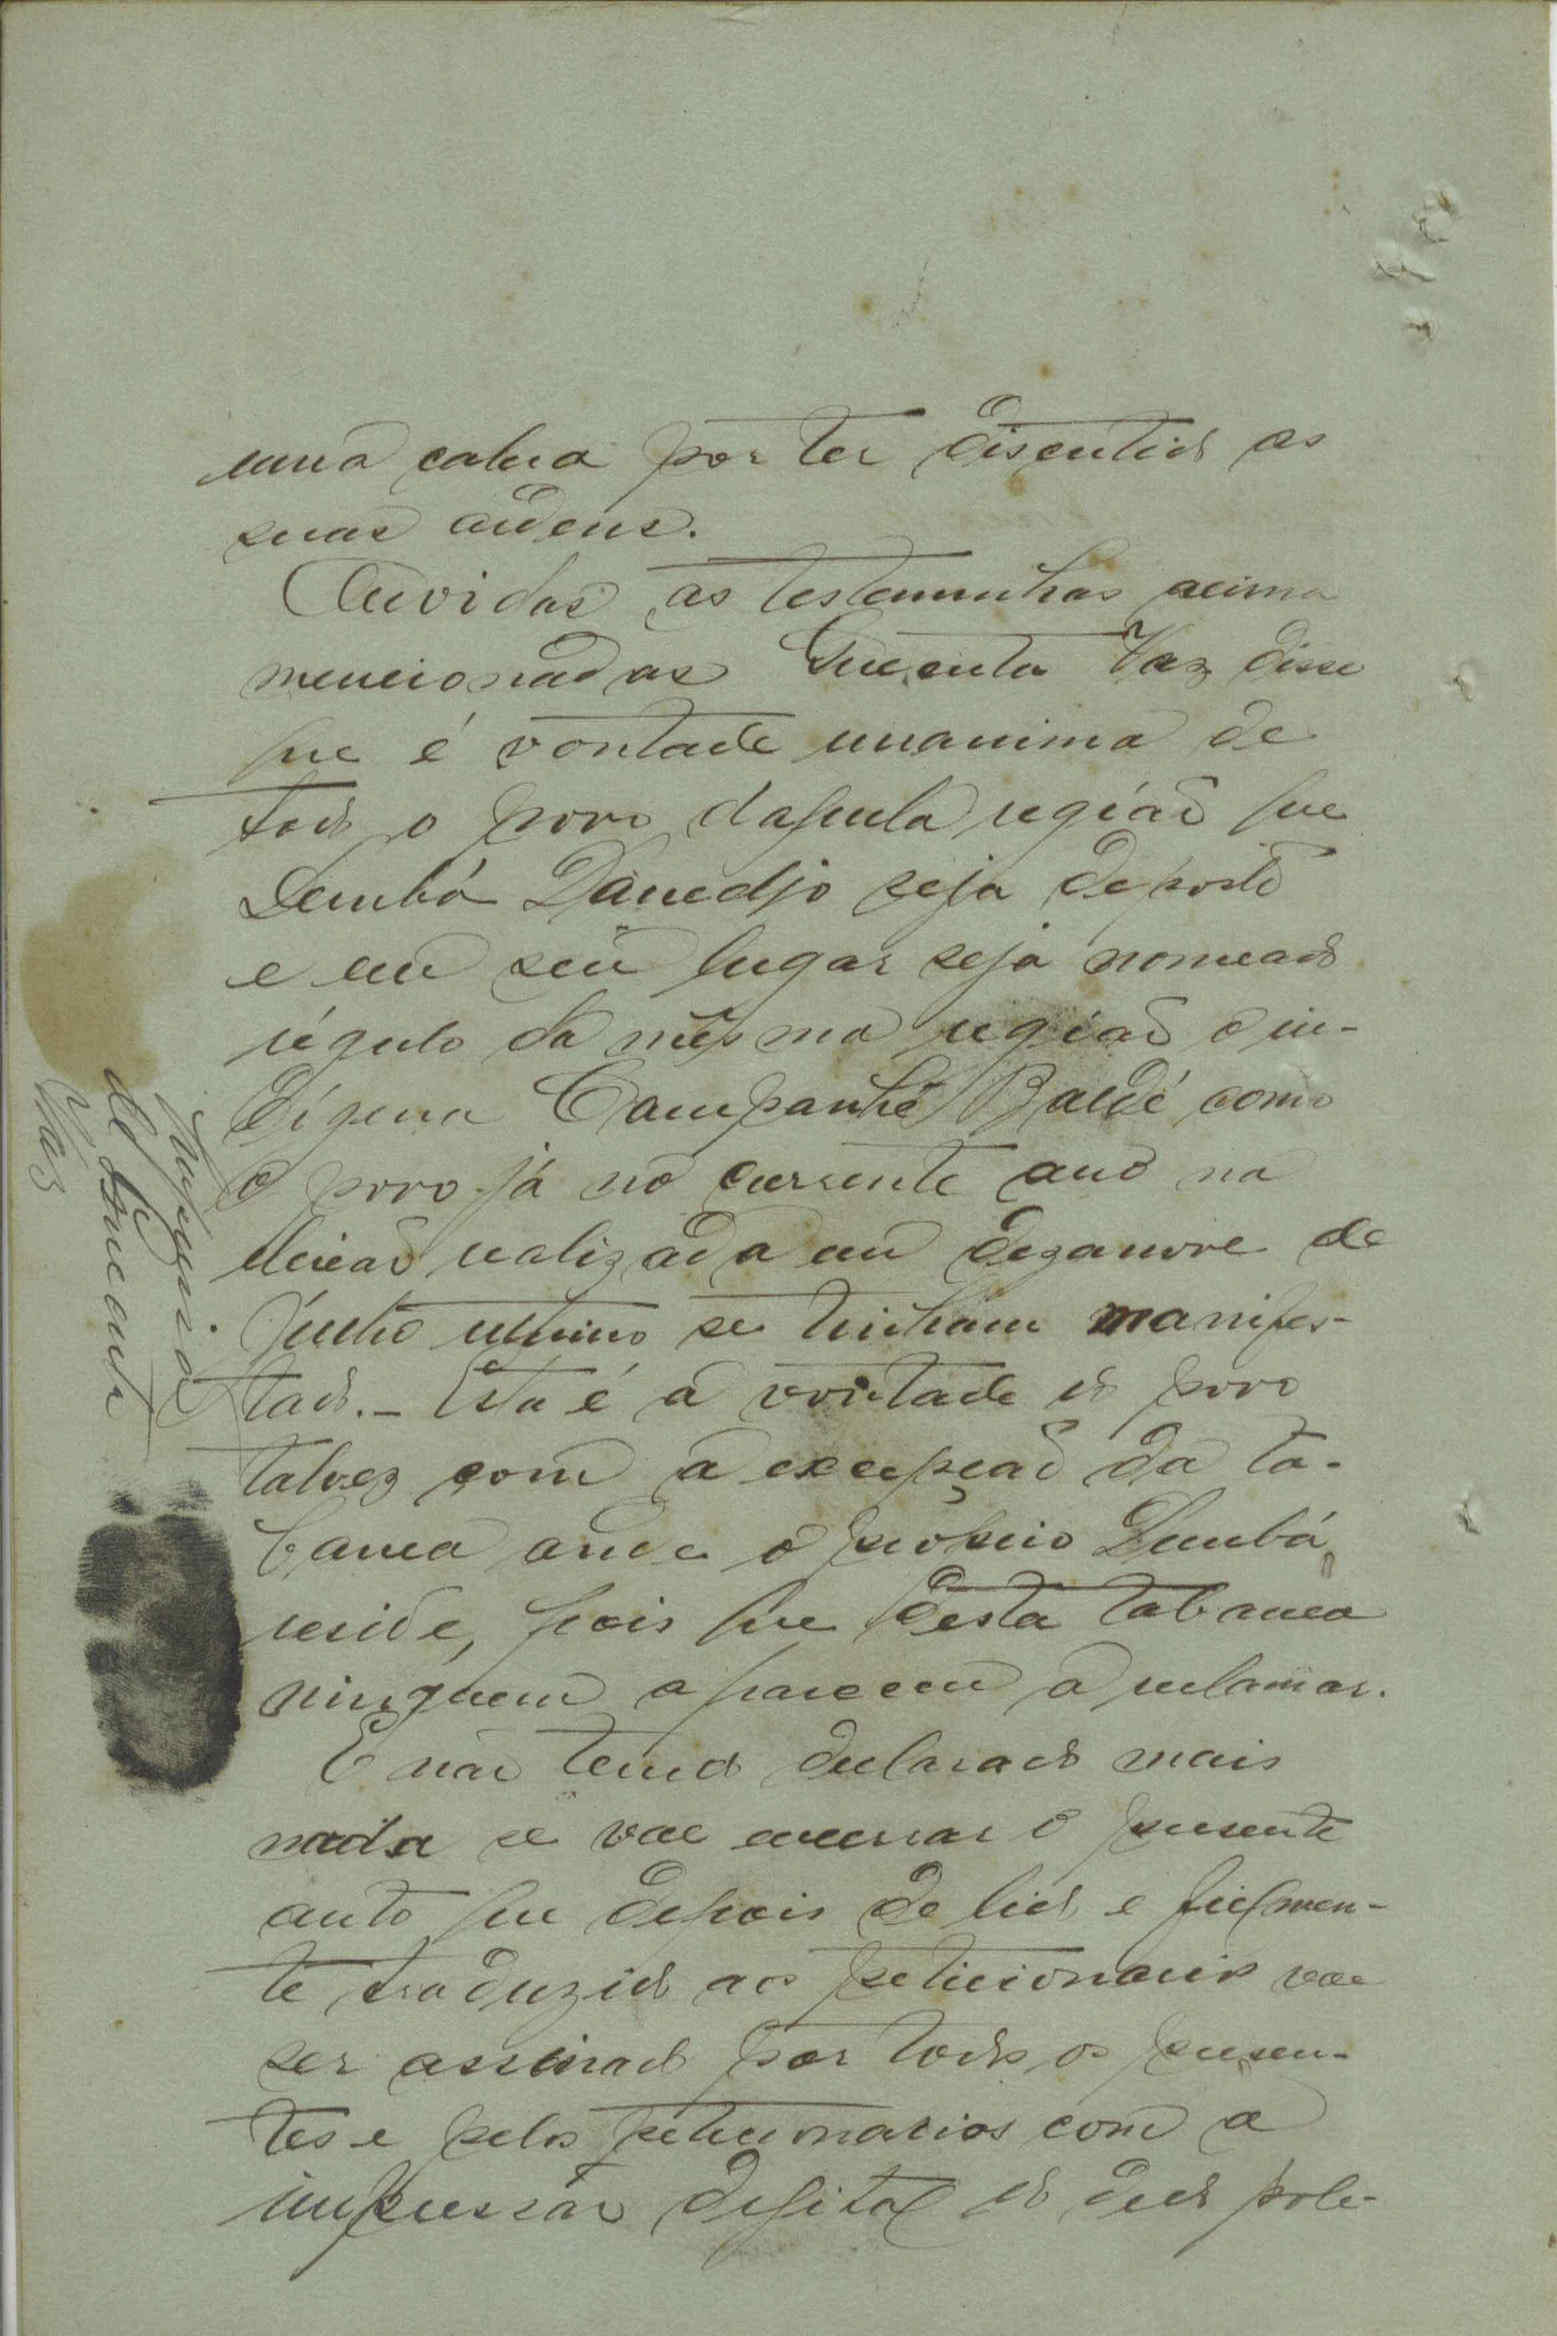 uma cabra por ter discutido as
suas ordens.
Ouvidas as testemunhas acima
mencionadas Vaz disse
que é vontade unanima de
todo o povo daquela região que
Dembá Danedjo seja deposto
e em seu lugar seja nomeado
régulo da mesma região o in-
digena Campanhé Baldé como
o povo já no corrente ano na
eleição realizada em dezanove de
Junho ultimo se tinham manifes-
tado. - Esta é a vontade do povo
talvez com a excepção da ta-
banca onde o proprio Dembá
reside, pois que desta tabanca
ninguem apareceu a reclamar.
E não tendo declarado mais
nada se vae encerrar o presente
auto que depois de lido e fielmen-
te traduzido aos peticionarios vae
ser assinado por todos os presen-
tes e pelos peticionarios com a
impressão digital do dedo pole-
Impressão
de
Vaz